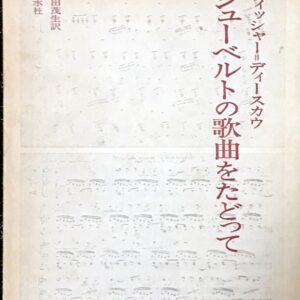 ィッシャー=ディースカウ
シューベルトの歌曲をたどって
田茂生訳
水社